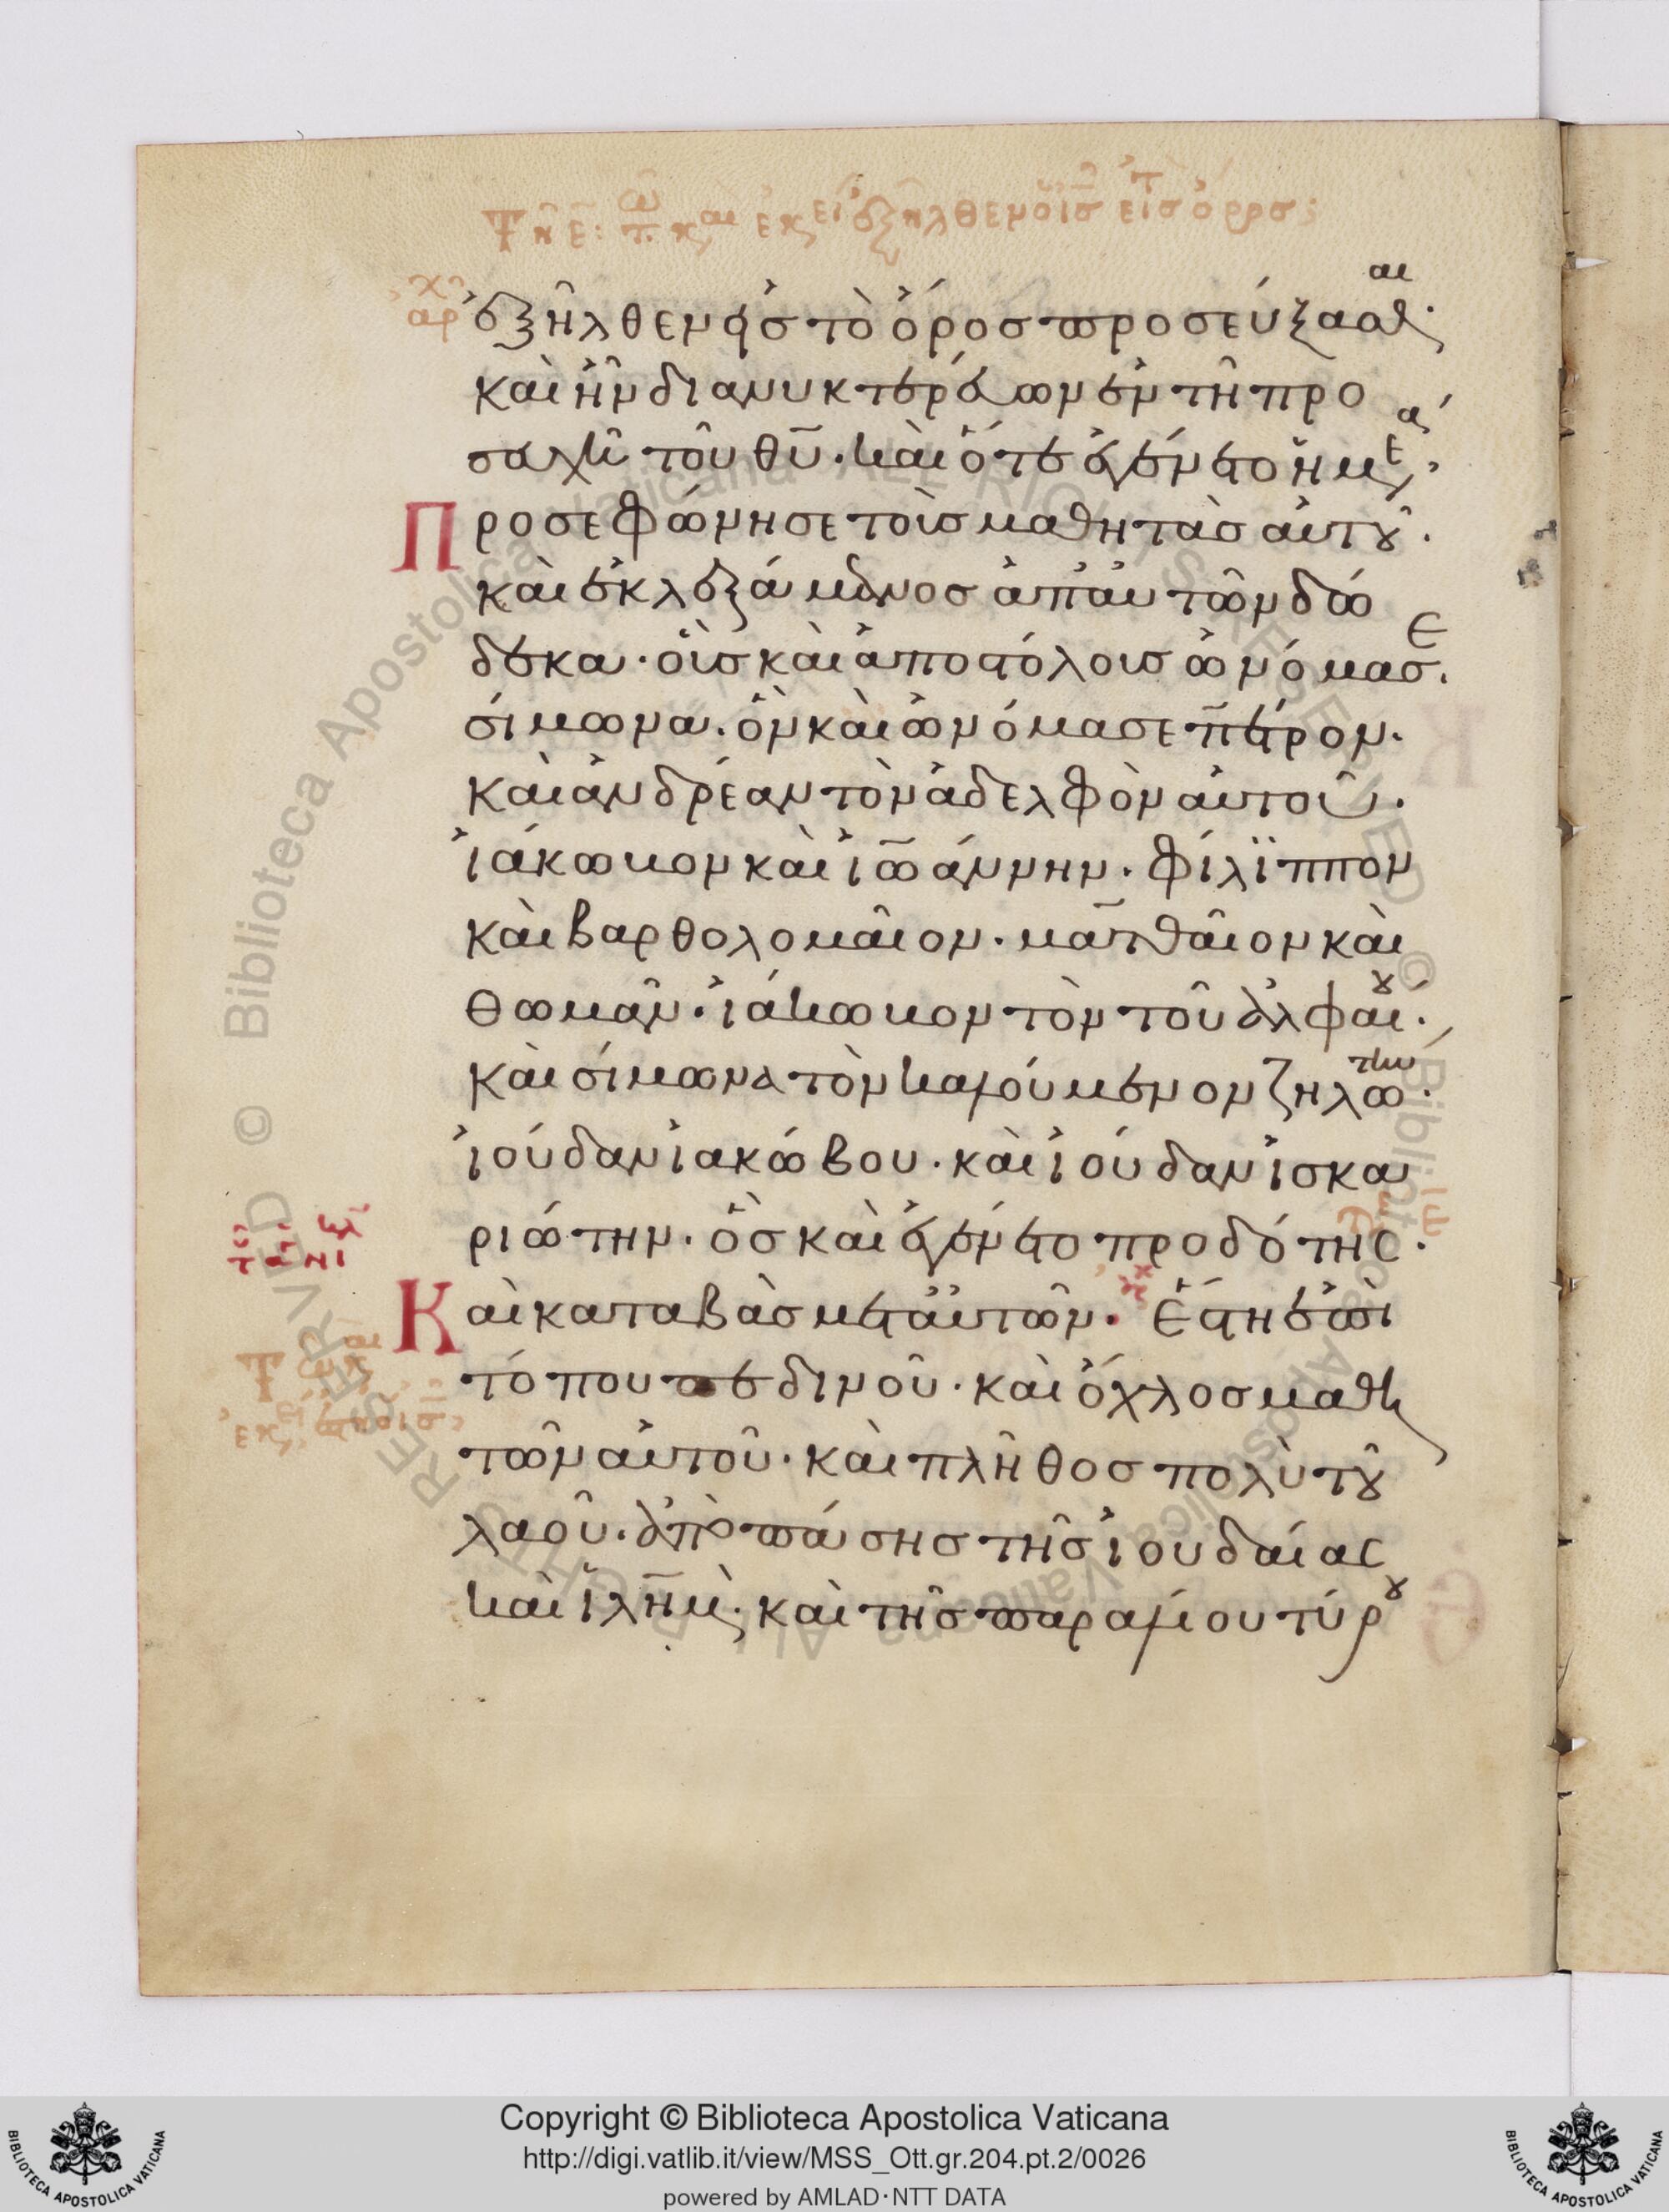 ἐξῆλθεν εἰς τὸ ὄρος προσεύξασθαι·
καὶ ἦν διανυκτερεύων ἐν τῆ προ
σευχῆ τοῦ θῦ. καὶ ὅτε ἐγένετο ἡμέρα,
Προσεφώνησε τοῖς μαθητὰς αὐτοῦ.
καὶ ἐκλεξάμενος ἀπ' αὐτῶν δώ
δεκα· οἳς καὶ ἀποστόλοις ὠνόμασε.
σίμωνα. ὃν καὶ ὠνόμασε πέτρον.
καὶ ἀνδρέαν τὸν ἀδελφὸν αὐτοῦ.
ἰάκωβον καὶ ἰωάννην. φίλϊππον
καὶ βαρθολομαῖον. ματθαῖον καὶ
θωμᾶν. ἰάκωβον τὸν τοῦ ἀλφαίου.
καὶ σίμωνα τὸν καλούμενον ζηλωτὴν·
ἰούδαν ἰακώβου. καὶ ἰούδαν ἰσκα
ριώτην. ὃς καὶ ἐγένετο προδότης.
Καὶ καταβὰς μετ' αὐτῶν. Ἔστη ἐπὶ
τόπου πεδινοῦ. καὶ ὄχλος μαθη
τῶν αὐτοῦ. καὶ πλῆθος πολὺ τοῦ
λαοῦ. ἀπὸ πάσης τῆς ἰουδαίας
καὶ ἰλῆμ. καὶ τῆς παραλίου τύρου
Copyright © Biblioteca Apostolica Vaticana
http://digi.vatlib.it/view/MSS_Ott.gr.204.pt.2/0026
powered by AMLAD·NTT DATA